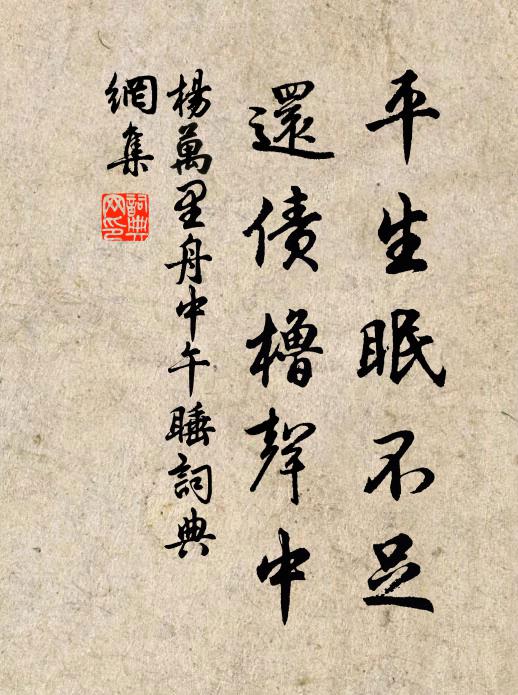 平生眠不足
還債櫓聲中
楊萬里舟中午睡詞典
網集
詞典
网印